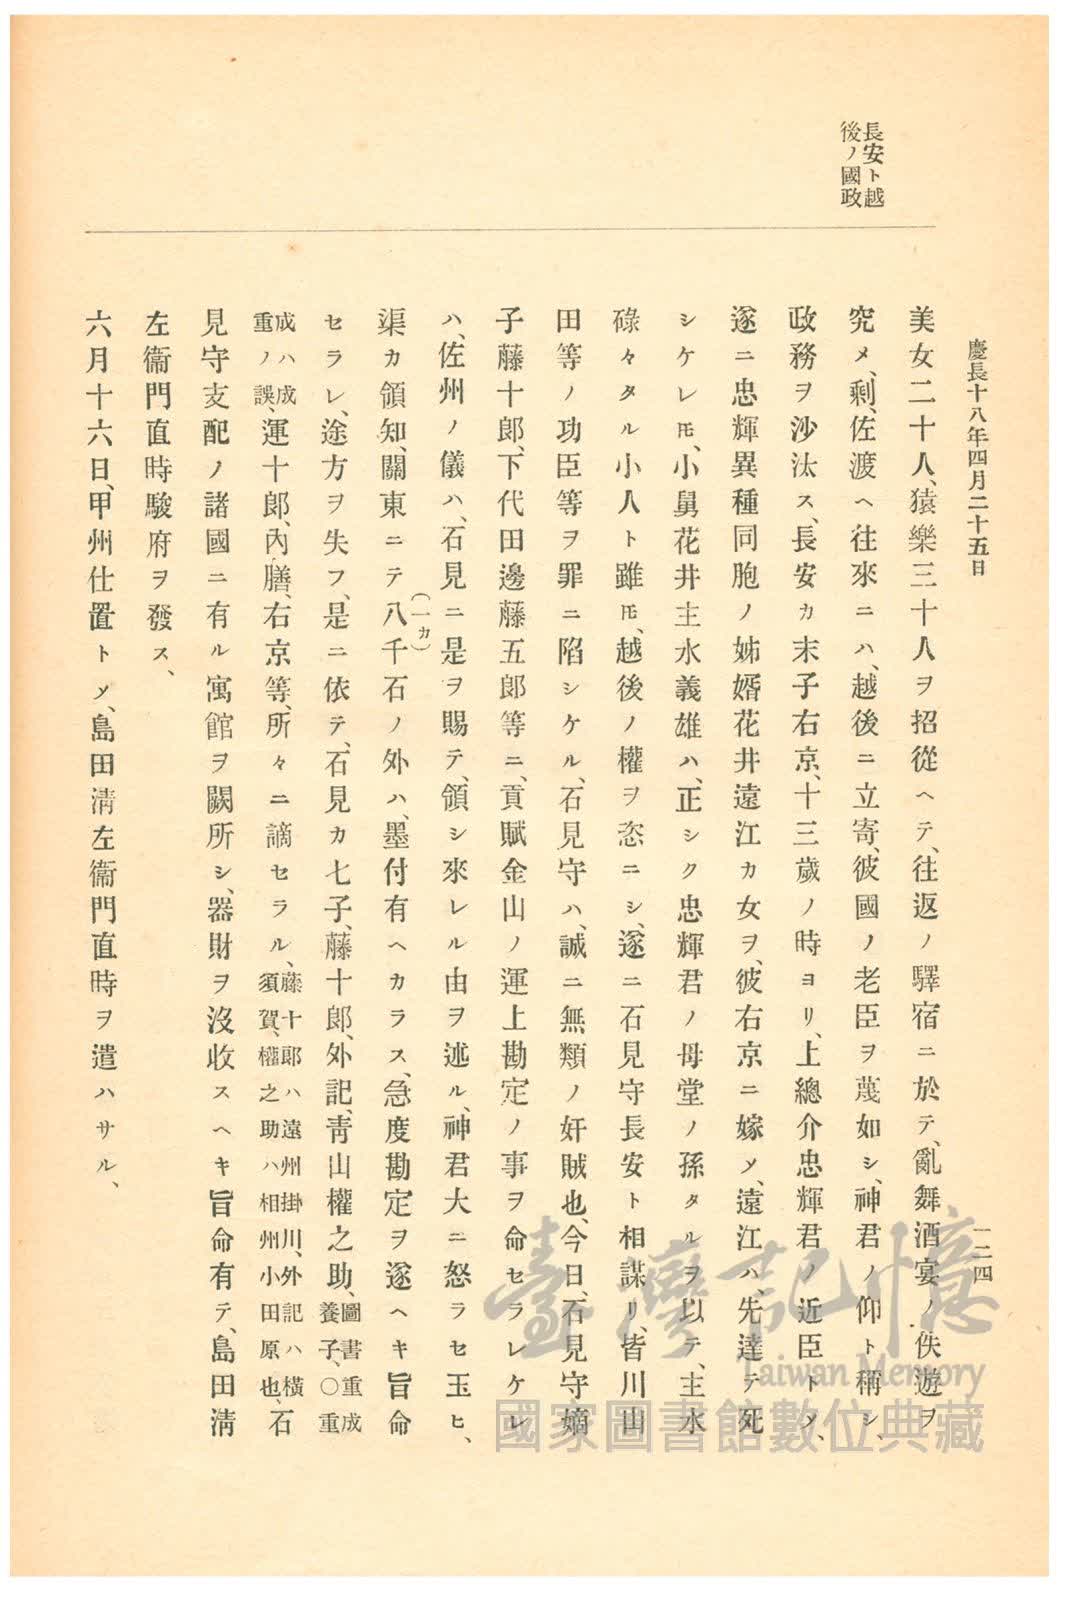 慶長十八年四月二十五日
一二四
長安ト越
後ノ國政
美女二十八、猿樂三十人ヲ招從ヘテ、往返ノ驛宿ニ於テ、亂舞酒宴ノ佚遊ヲ
究メ、剩、佐渡ヘ往來ニハ、越後ニ立寄、彼國ノ老臣ヲ蔑如シ、神君ノ仰ト稱シ、
政務ヲ沙汰ス、長安カ末子右京、十三歲ノ時ヨリ、上總介忠輝君ノ近臣トメ、
遂ニ忠輝異種同胞ノ姊婿花井遠江カ女ヲ、彼右京ニ嫁メ、遠江ハ、先達テ死
シケレ𪜈、小舅花井主水義雄ハ、正シク忠輝君ノ母堂ノ孫タルヲ以テ、主水
碌々タル小人ト雖𪜈、越後ノ權ヲ恣ニシ、遂ニ石見守長安ト相謀リ、皆川山
田等ノ功臣等ヲ罪ニ陷シケル、石見守ハ、誠ニ無類ノ奸賊也、今日、石見守嫡
子藤十郎、下代田邊藤五郎等ニ、貢賦金山ノ運上勘定ノ事ヲ命セラレケレ
ハ、佐州ノ儀ハ、石見ニ是ヲ賜テ、領シ來レル由ヲ述ル、神君大ニ怒ラセ玉ヒ、
渠カ領知、關東ニテ八(一カ)千石ノ外ハ、墨付有ヘカラス、急度勘定ヲ遂ヘキ旨命
セラレ、途方ヲ失フ、是ニ依テ、石見カ七子、藤十郎、外記、靑山權之助、圖書重成養子、○重
成ハ成重ノ誤、運十郎、內膳、右京等、所々ニ謫セラル、藤十郎ハ遠州掛川、外記ハ橫須賀、權之助ハ相州小田原也、石
見守支配ノ諸國ニ有ル寓館ヲ闕所シ、器財ヲ沒收スヘキ旨命有テ、島田淸
左衞門直時駿府ヲ發ス、
六月十六日、甲州仕置トメ、島田淸左衞門直時ヲ遣ハサル、
臺灣記憶
Taiwan Memory
國家圖書館數位典藏